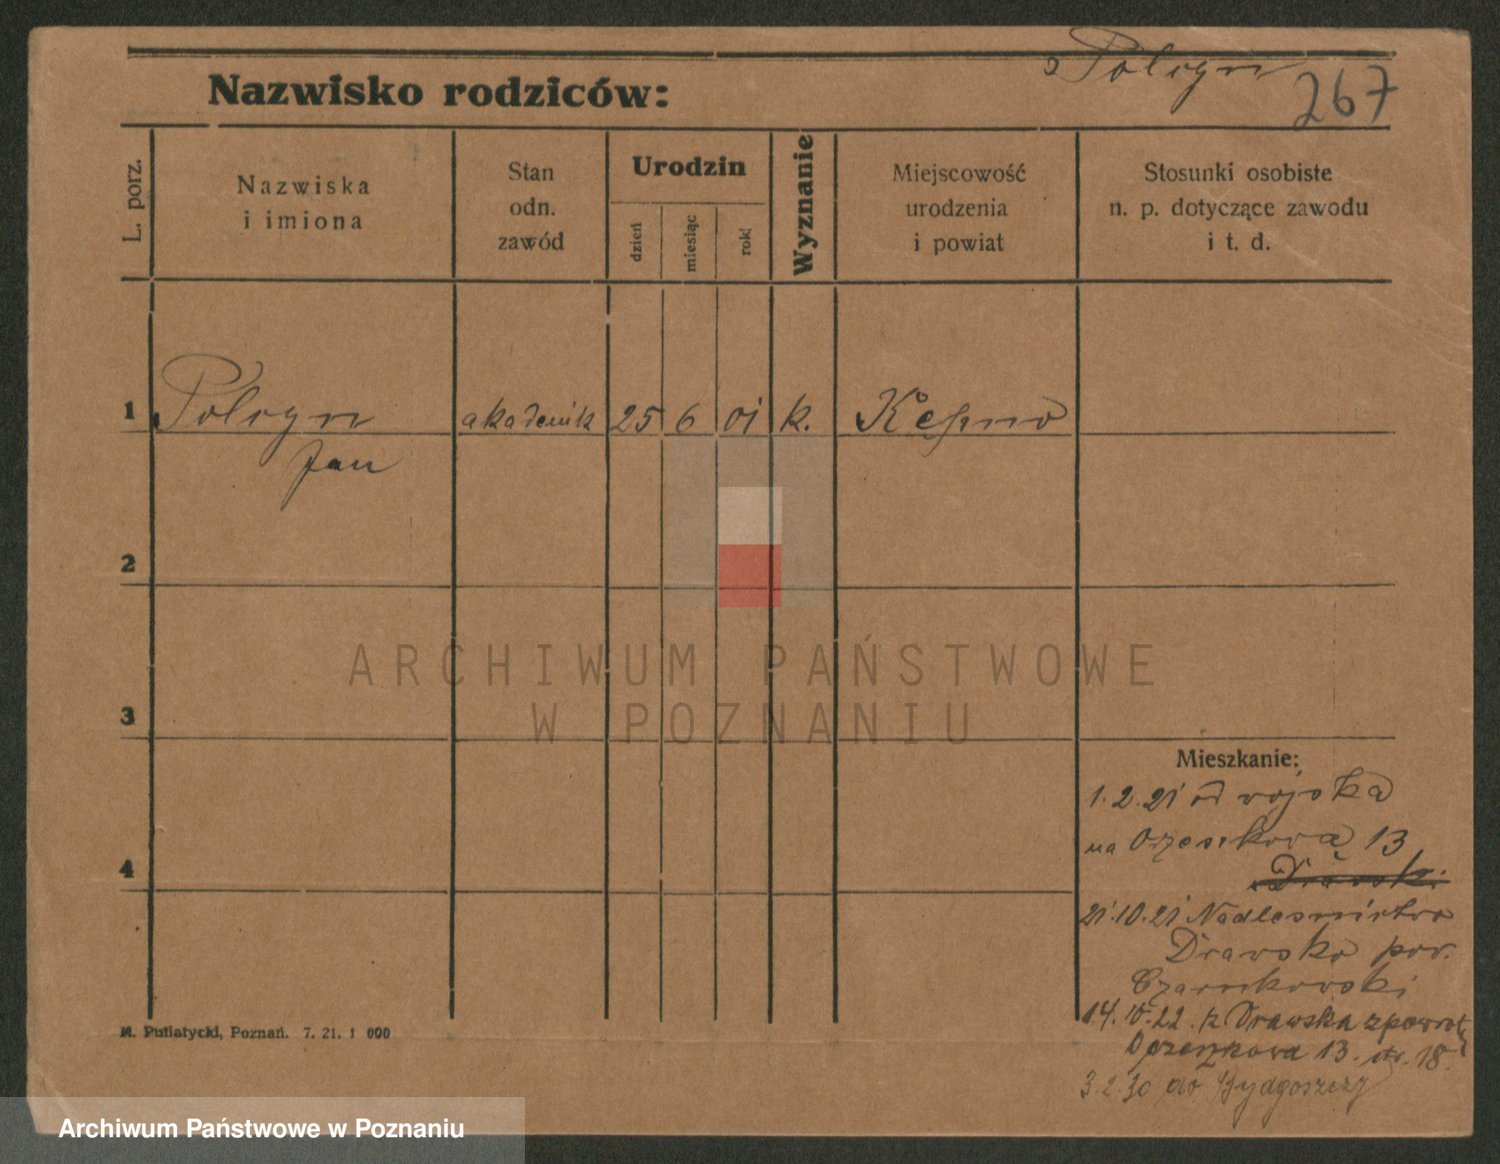 Pologyn
267
Nazwisko rodziców:
L. porz.
Nazwiska
i imiona
Stan
odn.
zawód
Urodzin
dzień
miesiąc
rok
Wyznanie
Miejscowość
urodzenia
i powiat
Stosunki osobiste
n. p. dotyczące zawodu
i t. d.
1 akademik 25 6 01 k. Kępno
Jan
2
3
4
ARCHIWUM PAŃSTWOWE
W POZNANIU
Mieszkanie:
1.2.21 od wojska
na 13
21.10.21 Nadleśnictwo
Drawsko pow.
Czarnkowski
14. 22. z Drawska zpowrot
13. 18.
3.2.30 do Bydgoszczy
M. Putiatycki, Poznań. 7. 21. 1 000
Archiwum Państwowe w Poznaniu